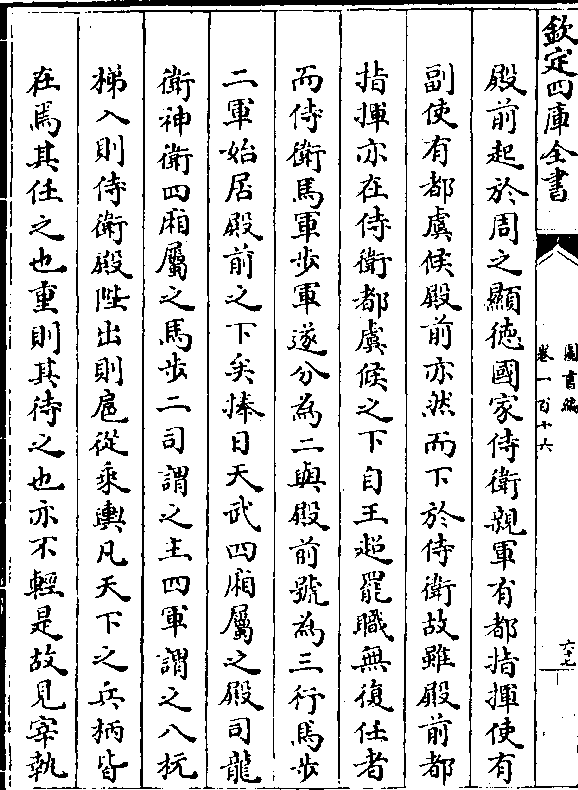 欽定四庫全書
圖書編
卷一百十六
六十七
殿前起於周之顯德國家侍衛親軍有都指揮使有
副使有都虞候殿前亦然而下於侍衛故雖殿前都
指揮亦在侍衛都虞候之下自王超罷職無復任者
而侍衛馬軍步軍遂分為二與殿前號為三行馬步
二軍始居殿前之下矣捧日天武四廂屬之殿司龍
衛神衛四廂屬之馬步二司謂之主四軍謂之八抏
梯入則侍衛殿陛出則扈從乘輿凡天下之兵柄皆
在焉其任之也重則其待之也亦不輕是故見宰執